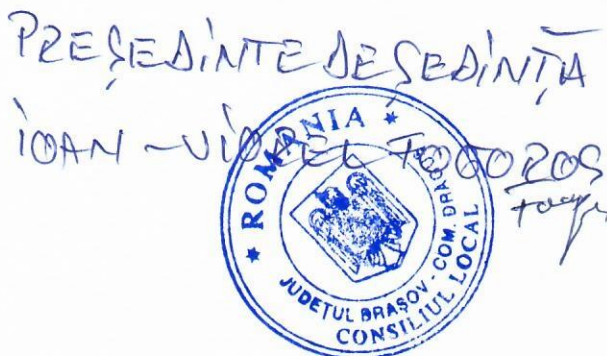 PREȘEDINTE DE ȘEDINȚĂ
IOAN-VIOREL FOGOROS
* ROMANIA *
JUDEȚUL BRAȘOV - COM. DRAGUS
CONSILIUL LOCAL